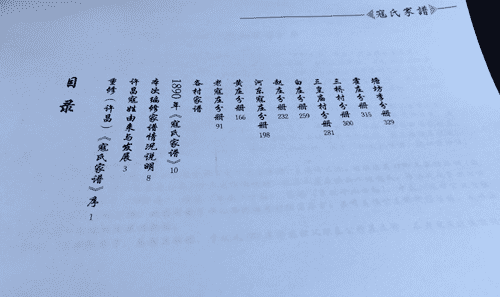 寇氏家谱
目录
重修（许昌）《寇氏家谱》序 1
许昌寇姓由来与发展 3
本次编修家谱情况说明 8
1890年《寇氏家谱》10
各村家谱
老寇庄分册 91
黄庄分册 166
河东寇庄分册 198
赵庄分册 232
白庄分册 259
三皇庙村分册 281
三桥村分册 300
霍庄分册 315
塘坊李分册 329